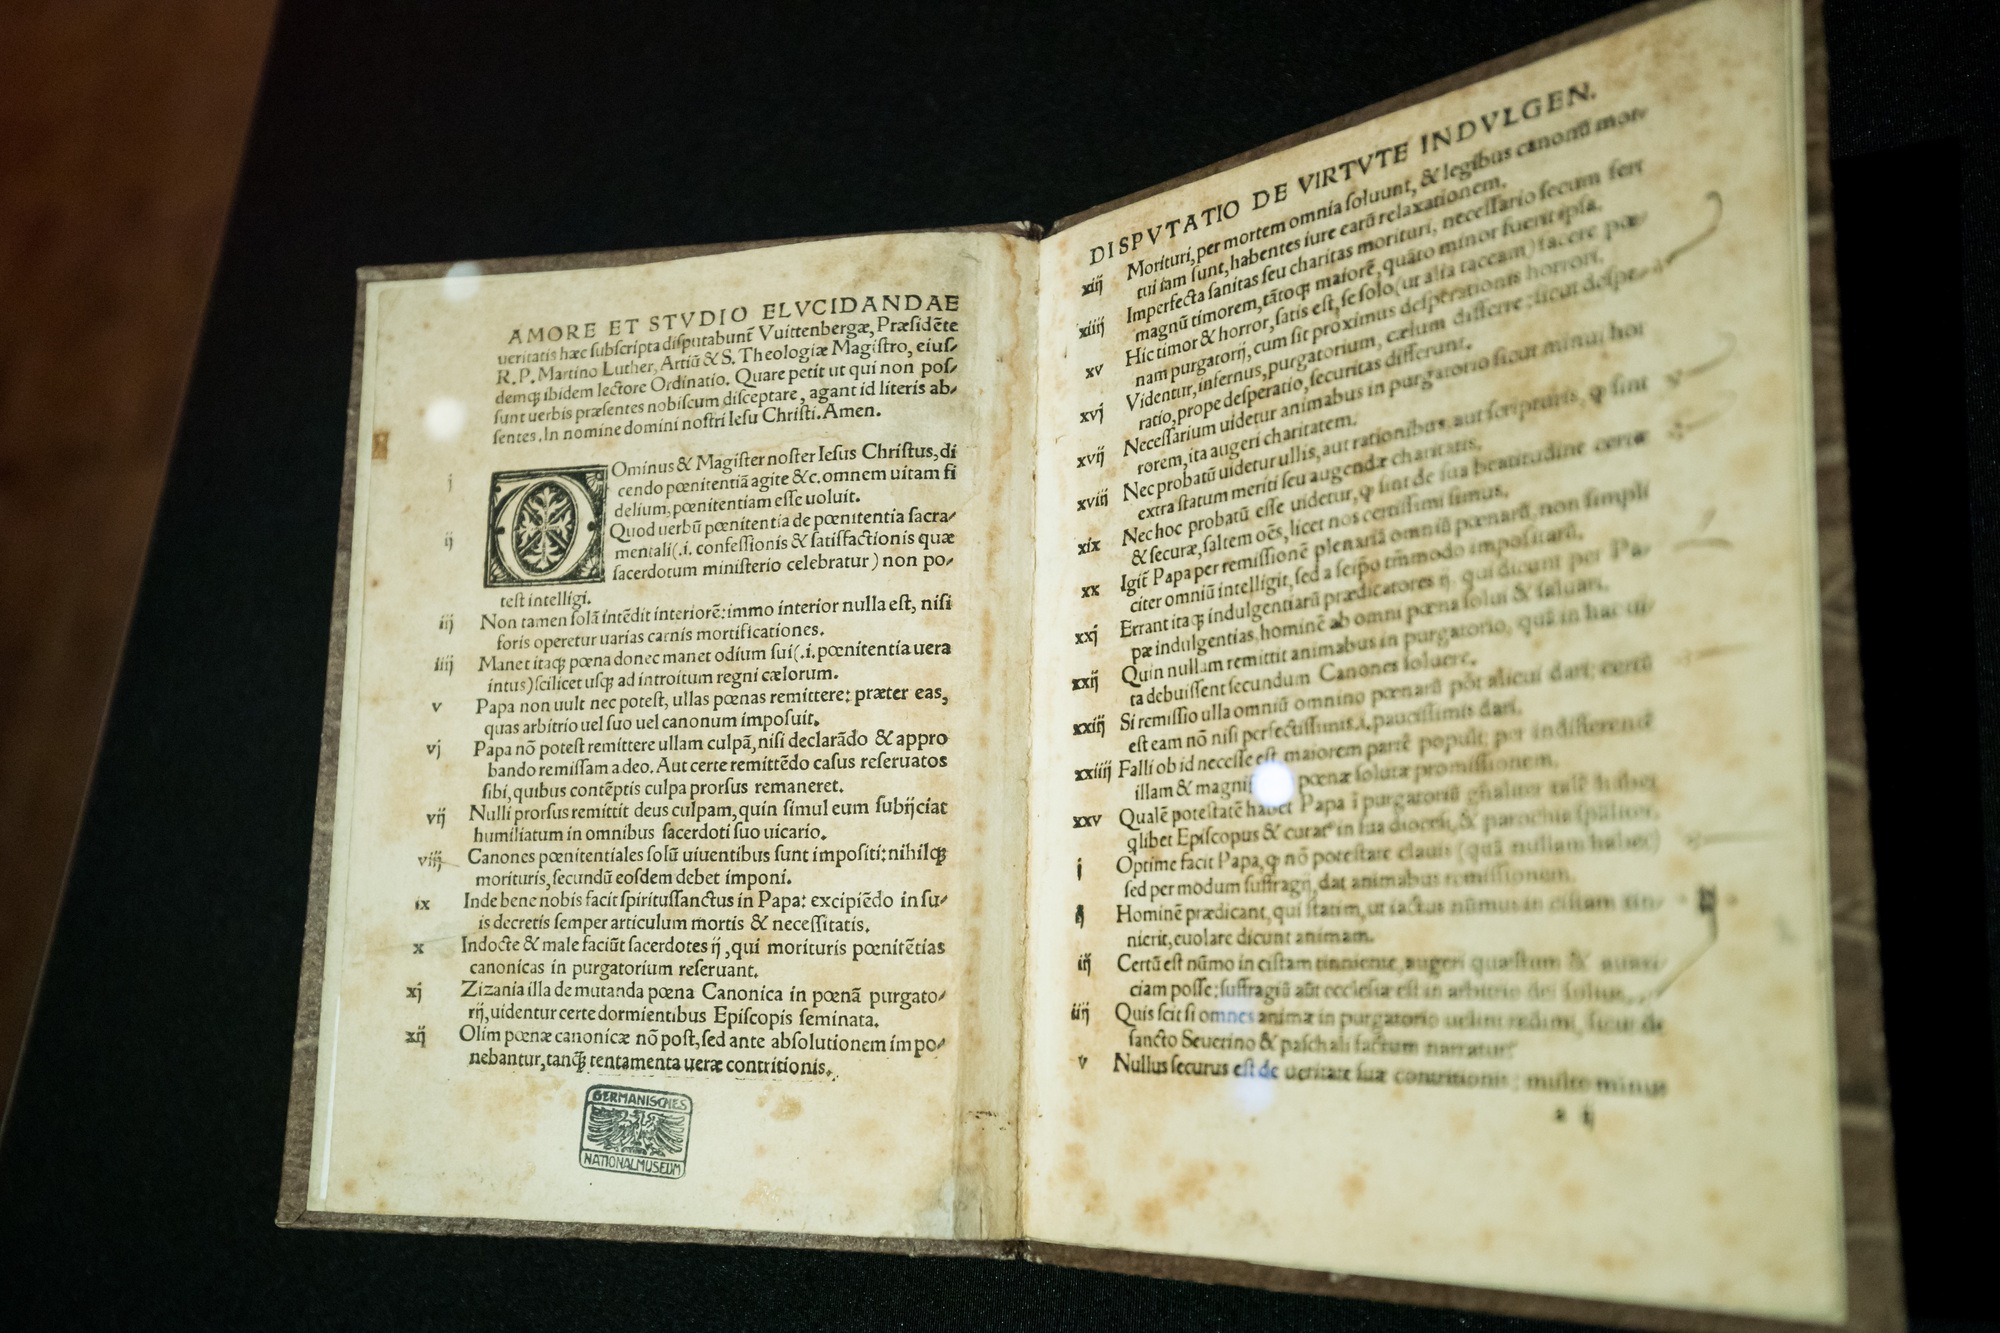 AMORE ET STVDIO ELVCIDANDAE
ueritatis hæc subscripta disputabunť Vuittenbergæ, Præsidēte
R.P. Martino Luther, Artiū & S. Theologiæ Magistro, eius-
demq; ibidem lectore Ordinatio. Quare petit ut qui non pos-
sunt uerbis præsentes nobiscum disceptare, agant id literis ab-
sentes. In nomine domini nostri Iesu Christi. Amen.
j DOminus & Magister noster Iesus Christus, di
cendo pœnitentiā agite &c. omnem uitam fi
delium, pœnitentiam esse uoluit.
ij Quod uerbū pœnitentia de pœnitentia sacra-
mentali(.i. confessionis & satisfactionis quæ
sacerdotum ministerio celebratur) non po-
test intelligi.
iij Non tamen solā intēdit interiorē: immo interior nulla est, nisi
foris operetur uarias carnis mortificationes.
iiij Manet itaq; pœna donec manet odium sui(.i. pœnitentia uera
intus) scilicet usq; ad introitum regni cælorum.
v Papa non uult nec potest, ullas pœnas remittere: præter eas,
quas arbitrio uel suo uel canonum imposuit.
vj Papa nō potest remittere ullam culpā, nisi declarādo & appro
bando remissam a deo. Aut certe remittēdo casus reseruatos
sibi, quibus contēptis culpa prorsus remaneret.
vij Nulli prorsus remittit deus culpam, quin simul eum subijciat
humiliatum in omnibus sacerdoti suo uicario.
viij Canones pœnitentiales solū uiuentibus sunt impositi: nihilq;
morituris, secundū eosdem debet imponi.
ix Inde bene nobis facit spiritussanctus in Papa: excipiēdo in su-
is decretis semper articulum mortis & necessitatis.
x Indocte & male faciūt sacerdotes ij, qui morituris pœnitētias
canonicas in purgatorium reseruant.
xj Zizania illa de mutanda pœna Canonica in pœnā purgato-
rij, uidentur certe dormientibus Episcopis seminata.
xij Olim pœnæ canonicæ nō post, sed ante absolutionem impo-
nebantur, tanq̄ tentamenta ueræ contritionis.
GERMANISCHES
NATIONALMUSEUM
DISPVTATIO DE VIRTVTE INDVLGEN.
xiij Morituri, per mortem omnia soluunt, & legibus canonū mor-
tui iam sunt, habentes iure earū relaxationem.
xiiij Imperfecta sanitas seu charitas morituri, necessario secum fert
magnū timorem, tātoq; maiorē, quāto minor fuerit ipsa.
xv Hic timor & horror, satis est, se solo (ut alia taceam) facere pœ-
nam purgatorij, cum sit proximus desperationis horrori.
xvj Videntur, infernus, purgatorium, cælum differre: sicut despe-
ratio, prope desperatio, securitas differunt.
xvij Necessarium uidetur animabus in purgatorio sicut minui hor
rorem, ita augeri charitatem.
xviij Nec probatū uidetur ullis, aut rationibus, aut scripturis, ꝙ sint
extra statum meriti seu augendæ charitatis.
xix Nec hoc probatū esse uidetur, ꝙ sint de sua beatitudine certæ
& securæ, saltem oēs, licet nos certissimi simus.
xx Igiť Papa per remissionē plenariā omniū pœnarū, non simpli
citer omniū intelligit, sed a seipso tm̄modo impositarū.
xxj Errant itaq; indulgentiarū prædicatores ij, qui dicunt per Pa-
pæ indulgentias, hominē ab omni pœna solui & saluari.
xxij Quin nullam remittit animabus in purgatorio, quā in hac ui-
ta debuissent secundum Canones soluere.
xxiij Si remissio ulla omniū omnino pœnarū pōt alicui dari: certū
est eam nō nisi perfectissimis.i. paucissimis dari.
xxiiij Falli ob id necesse est maiorem partē populi: per indifferentē
illam & magnif pœnæ solutæ promissionem.
xxv Qualē potestatē habet Papa ī purgatoriū gn̄aliter talē habet
qlibet Episcopus & curať in sua diocesi, & parochia sp̄āliter.
j Optime facit Papa, ꝙ nō potestate clauis (quā nullam habet)
sed per modum suffragij, dat animabus remissionem.
ij Hominē prædicant, qui statim, ut iactus nūmus in cistam tin-
nierit, euolare dicunt animam.
iij Certū est nūmo in cistam tinniente, augeri quæstum & auari
ciam posse: suffragiū aūt ecclesiæ est in arbitrio dei solius.
iiij Quis scit si omnes animæ in purgatorio uelint redimi, sicut de
sancto Seuerino & paschali factum narratur.
v Nullus securus est de ueritate suæ contritionis; multo minus
a ij